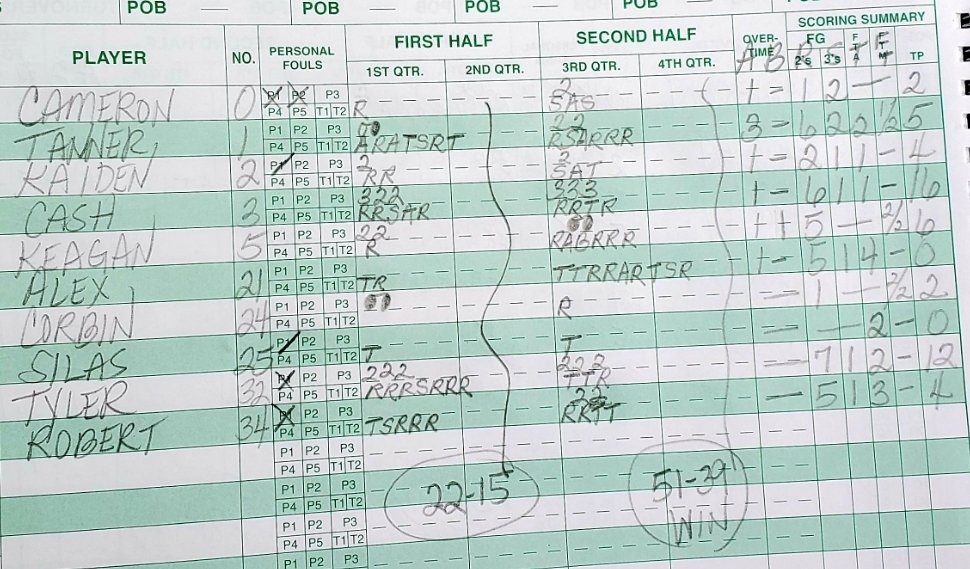 POB POB POB POB
PLAYER NO. PERSONAL FOULS FIRST HALF SECOND HALF OVER-TIME SCORING SUMMARY
1ST QTR. 2ND QTR. 3RD QTR. 4TH QTR. A B R S T FG 2's 3's FTA FTM TP
CAMERON 0 P1 P2 P3 P4 P5 T1 T2 R 2 SAS 1 - 1 2 - 2
TANNER 1 P1 P2 P3 P4 P5 T1 T2 ARATSRT 22 RSARRR 3 - 6 2 2 1/2 5
KAIDEN 2 P1 P2 P3 P4 P5 T1 T2 2 RR 2 SAT 1 - 2 1 1 - 4
CASH 3 P1 P2 P3 P4 P5 T1 T2 222 RRSAR 333 RRTR 1 - 6 1 1 - 16
KEAGAN 5 P1 P2 P3 P4 P5 T1 T2 22 R RABRRR 1 1 5 - 2/2 6
ALEX 21 P1 P2 P3 P4 P5 T1 T2 TR TTRRARTSR 1 - 5 1 4 - 0
CORBIN 24 P1 P2 P3 P4 P5 T1 T2 R - 1 - 2/2 2
SILAS 25 P1 P2 P3 P4 P5 T1 T2 T T - - 2 - 0
TYLER 32 P1 P2 P3 P4 P5 T1 T2 222 RRRSRRR 222 TTR - 7 1 2 - 12
ROBERT 34 P1 P2 P3 P4 P5 T1 T2 TSRRR 22 RRTT - 5 1 3 - 4
P1 P2 P3
P4 P5 T1 T2
P1 P2 P3
P4 P5 T1 T2
22-15 51-39 WIN
P1 P2 P3
P4 P5 T1 T2
P1 P2 P3